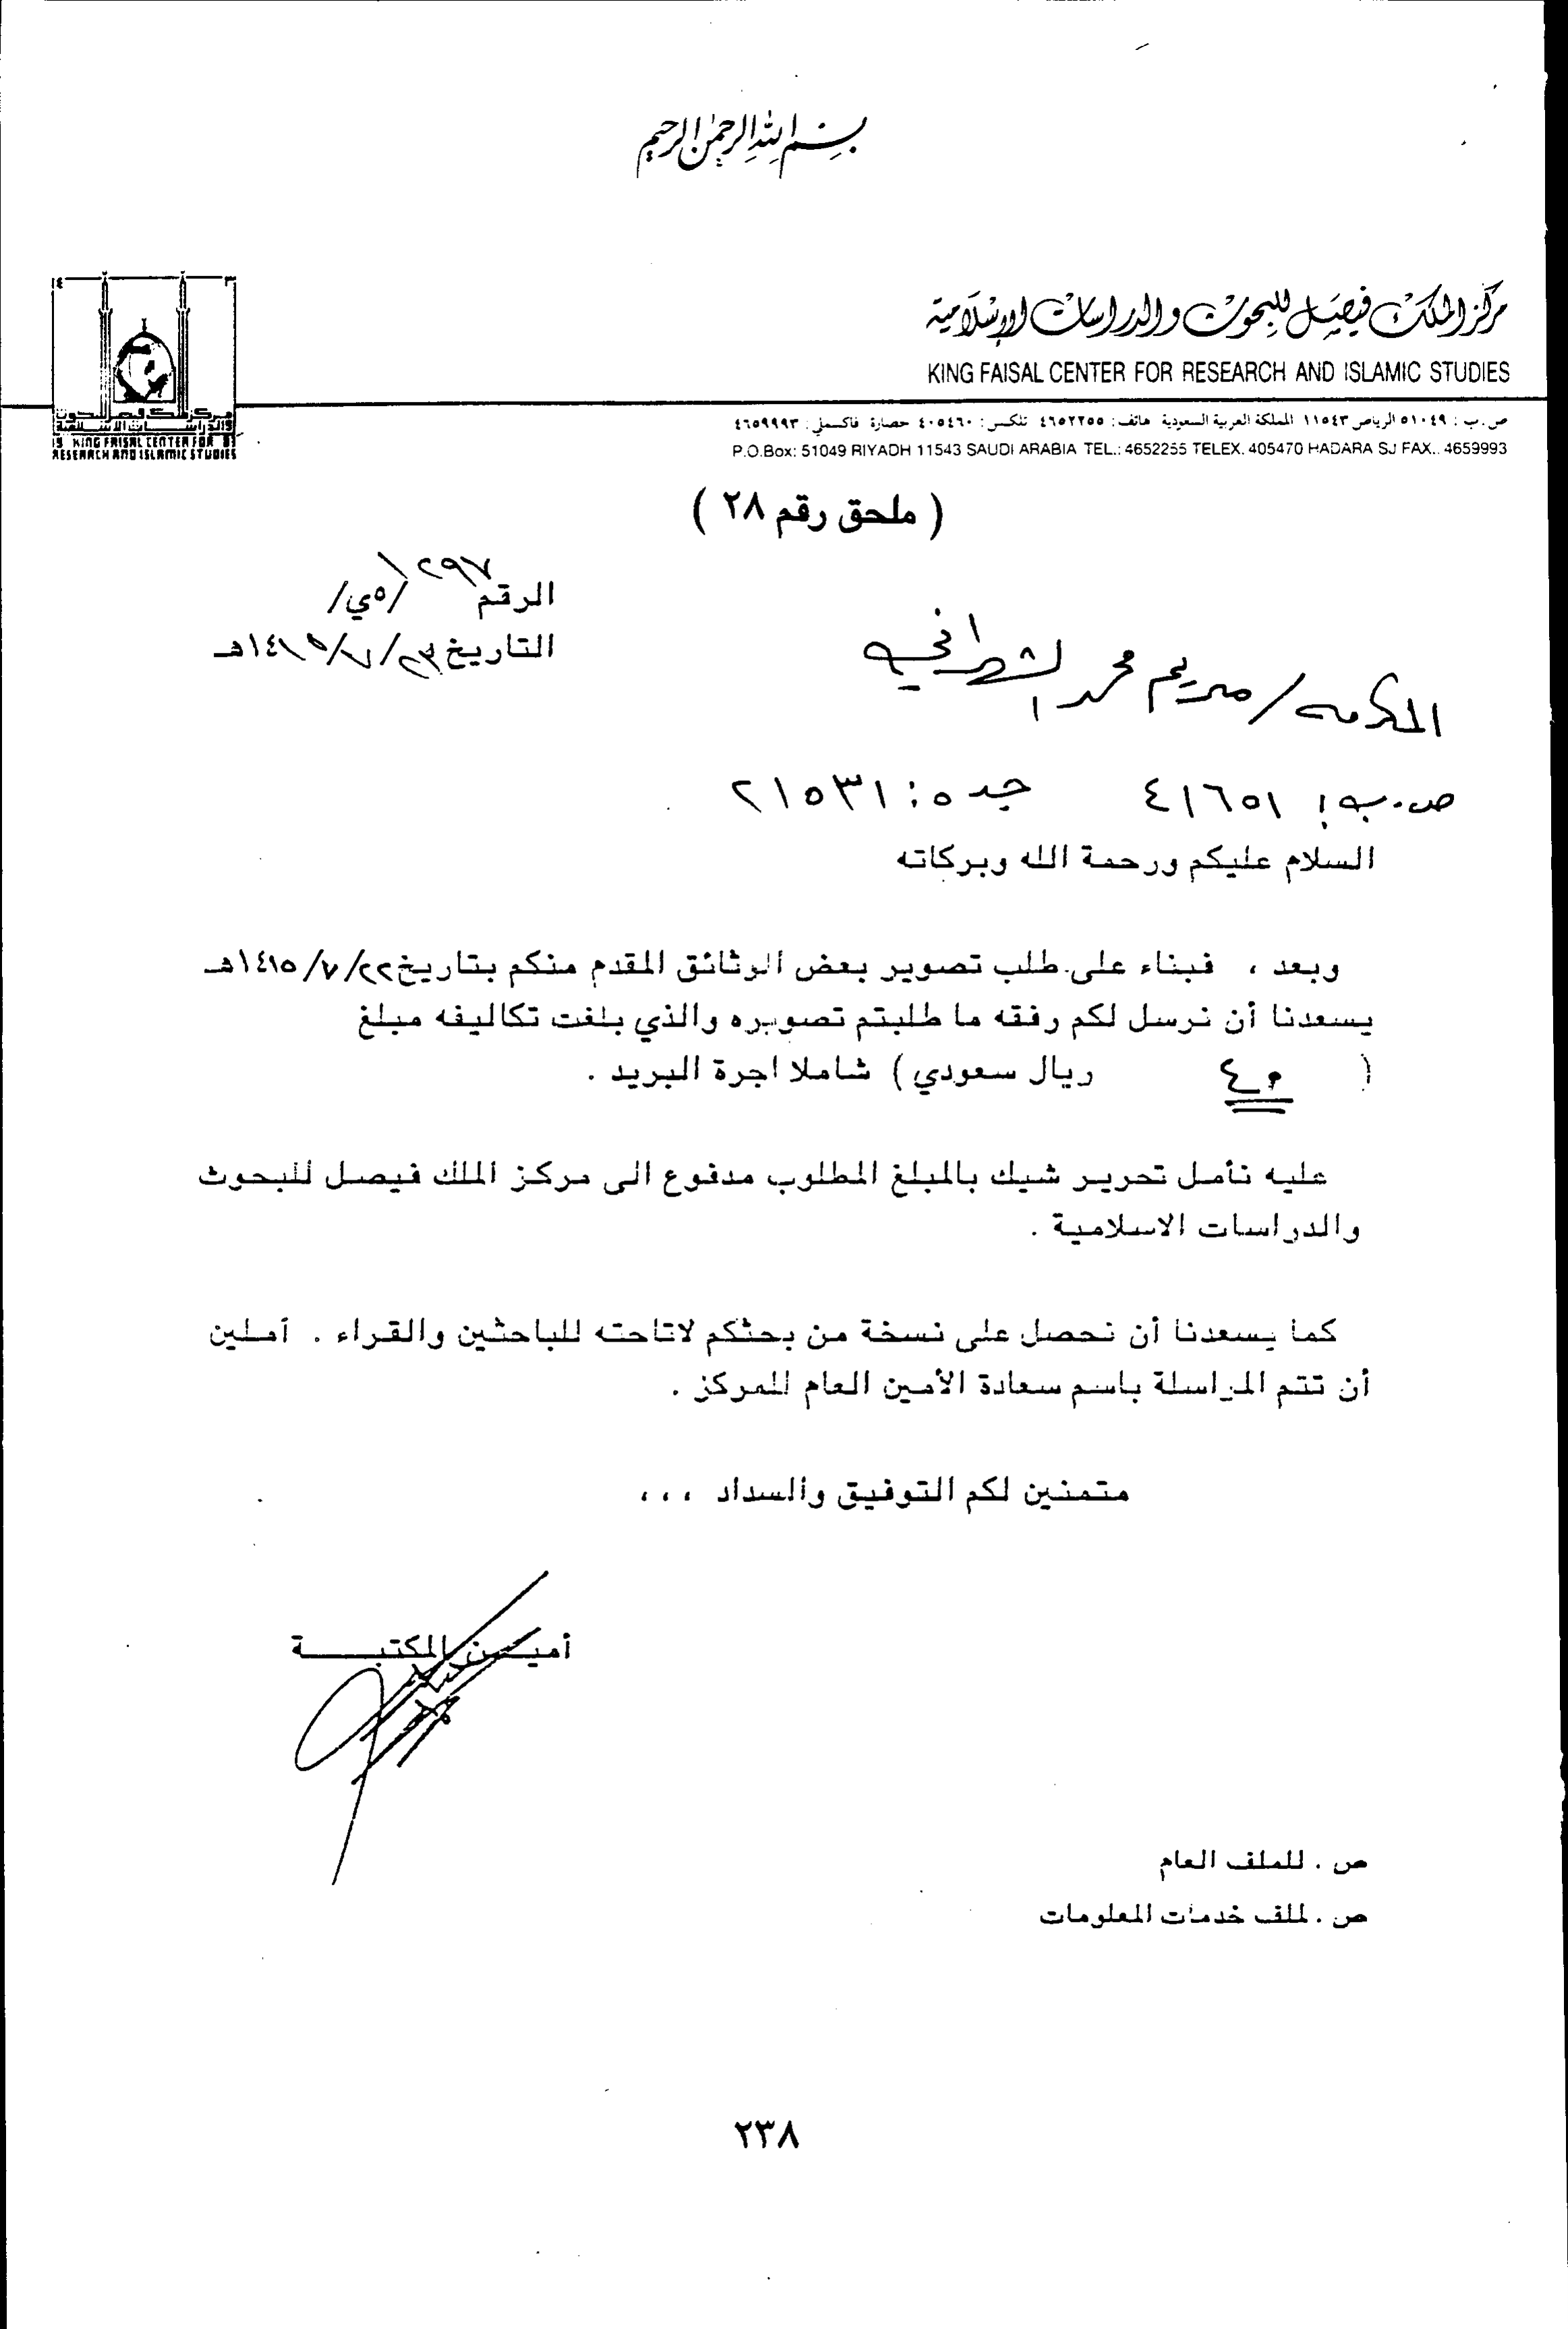 بسم الله الرحمن الرحيم
مركز الملك فيصل للبحوث والدراسات الإسلامية
KING FAISAL CENTER FOR RESEARCH AND ISLAMIC STUDIES
ص.ب : ٥١٠٤٩ الرياض ١١٥٤٣ المملكة العربية السعودية هاتف: ٤٦٥٢٢٥٥ تلكس: ٤٠٥٤٦٠ حضارة فاكسملي: ٤٦٥٩٩٩٣
P.O.Box: 51049 RIYADH 11543 SAUDI ARABIA TEL.: 4652255 TELEX. 405470 HADARA SJ FAX.. 4659993
١٤ ٣
مركز الملك فيصل للبحوث
والدراسات الاسلامية
19 KING FAISAL CENTER FOR 83
RESEARCH AND ISLAMIC STUDIES
( ملحق رقم ٢٨ )
الرقم ٢٩٧ /٥ي/
التاريخ ٢٣/٧/١٤١٥هـ
المكرمه / مريم محمد
ص.ب: ٤١٦٥١ جده: ٢١٥٣١
السلام عليكم ورحمة الله وبركاته
وبعد ، فبناء على طلب تصوير بعض الوثائق المقدم منكم بتاريخ ٢٢/٧/١٤١٥هـ
يسعدنا أن نرسل لكم رفقه ما طلبتم تصويره والذي بلغت تكاليفه مبلغ
( ٤٠ ريال سعودي) شاملا اجرة البريد .
عليه نأمل تحرير شيك بالمبلغ المطلوب مدفوع الى مركز الملك فيصل للبحوث
والدراسات الاسلامية .
كما يسعدنا أن نحصل على نسخة من بحثكم لاتاحته للباحثين والقراء . آملين
أن تتم المراسلة باسم سعادة الأمين العام للمركز .
متمنين لكم التوفيق والسداد ،،،
أميـــن المكتبـــــة
ص . للملف العام
ص . لملف خدمات المعلومات
٢٣٨